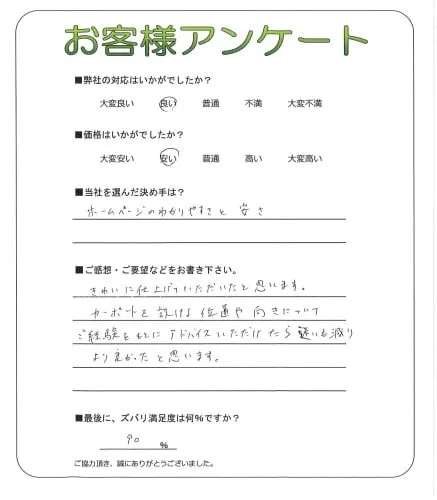 お客様アンケート
■弊社の対応はいかがでしたか?
大変良い 良い 普通 不満 大変不満
■価格はいかがでしたか?
大変安い 安い 普通 高い 大変高い
■当社を選んだ決め手は?
ホームページのわかりやすさと 安さ
■ご感想・ご要望などをお書き下さい。
きれいに仕上げていただいたと思います。
カーポートを設ける位置や向きについて
ご経験をもとにアドバイスいただけたら迷いも減り
より良かったと思います。
■最後に、ズバリ満足度は何%ですか?
90 %
ご協力頂き、誠にありがとうございました。